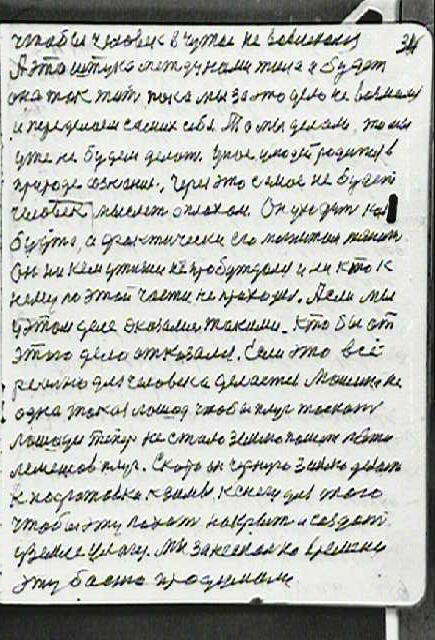 чтобы человек в чужое не вовлекался 34
А эта штука между нами жила и будет
она так жить пока мы за это дело не возьмемся
и переделаем самих себя. То мы делали, то мы
уже не будем делать. У нас у людей родится в
природе сознание, через это самое не будет
человек мыслить о плохом. Он уходит как
будто, а фактически его
Он ни кем не пробуждался и ни кто к
нему по этой части не приходил. А если мы
у этом деле оказались такими. Кто бы от
этого дела отказался. Если это всё
реально для человека делается Машина не
одна такая лошадь чтобы плуг таскать
лошади теперь не стало землю пашет
лемешов плуг. Скоро он черную землю
к подготовке к зимы к снегу для того
чтобы эту пахоту накрыть и создать
у земле влагу. Мы за несколько времени
эту басню продумали